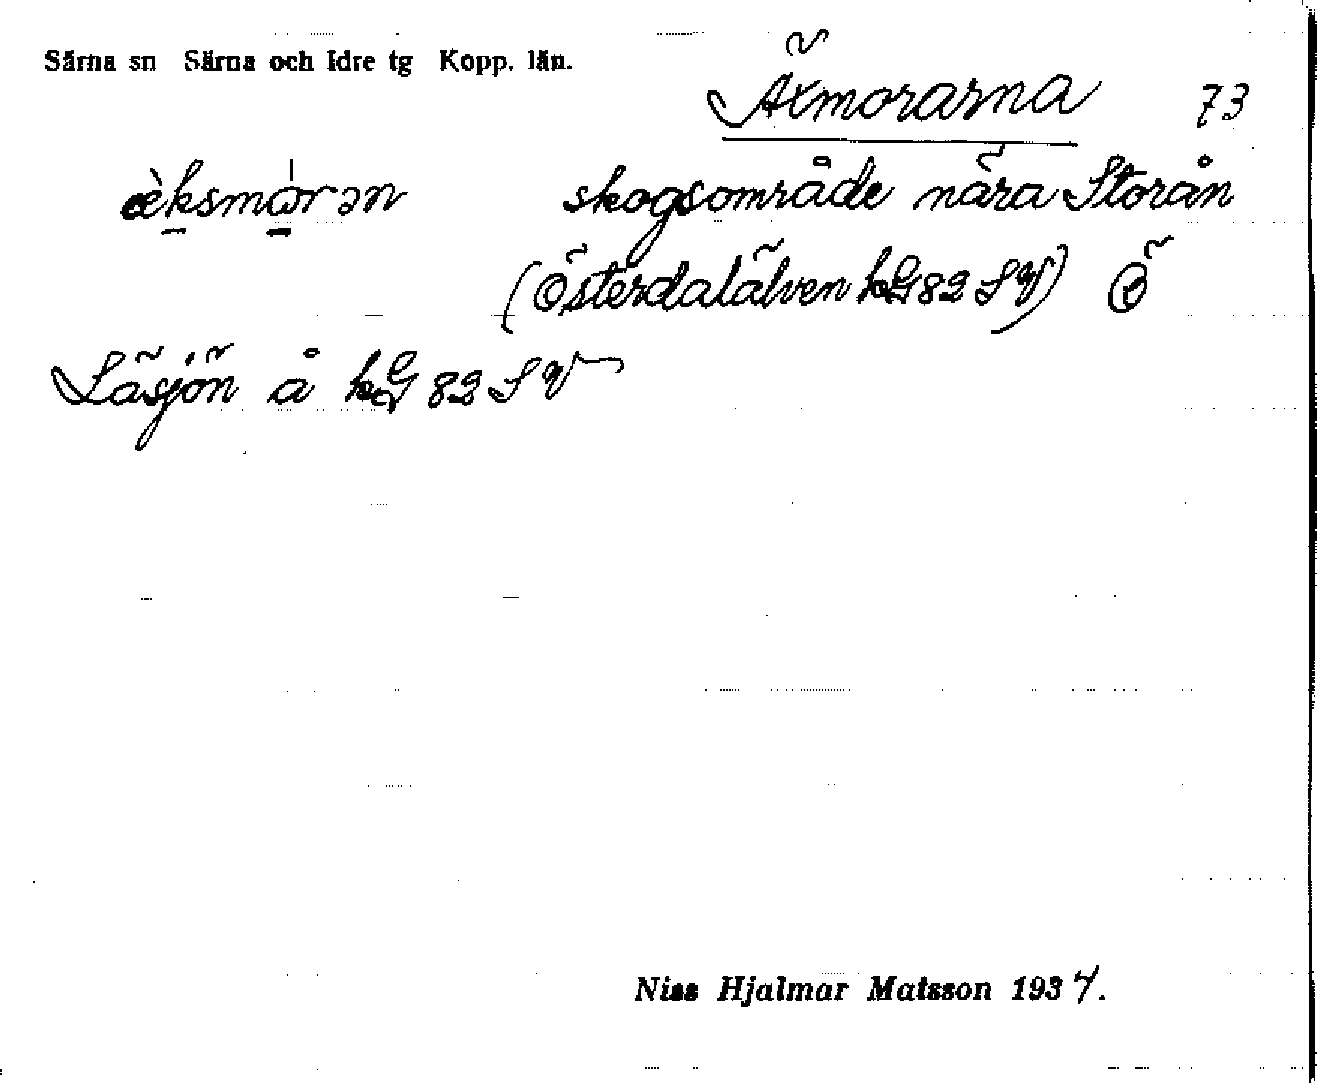 Särna sn Särna och Idre tg Kopp. län.
Äxmorarna 73
skogsområde nära Storån
(Österdalälven kG 82 SV) Ö
Läsjön å kG 82 SV
Niss Hjalmar Matsson 1934.